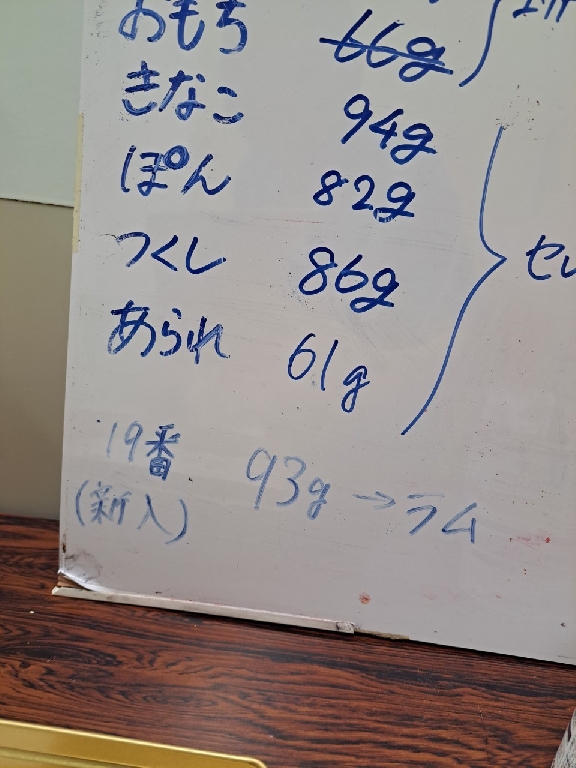 おもち 66g
きなこ 94g
ぽん 82g
つくし 86g
あられ 61g
セレ
19番 93g→ラム
(新入)